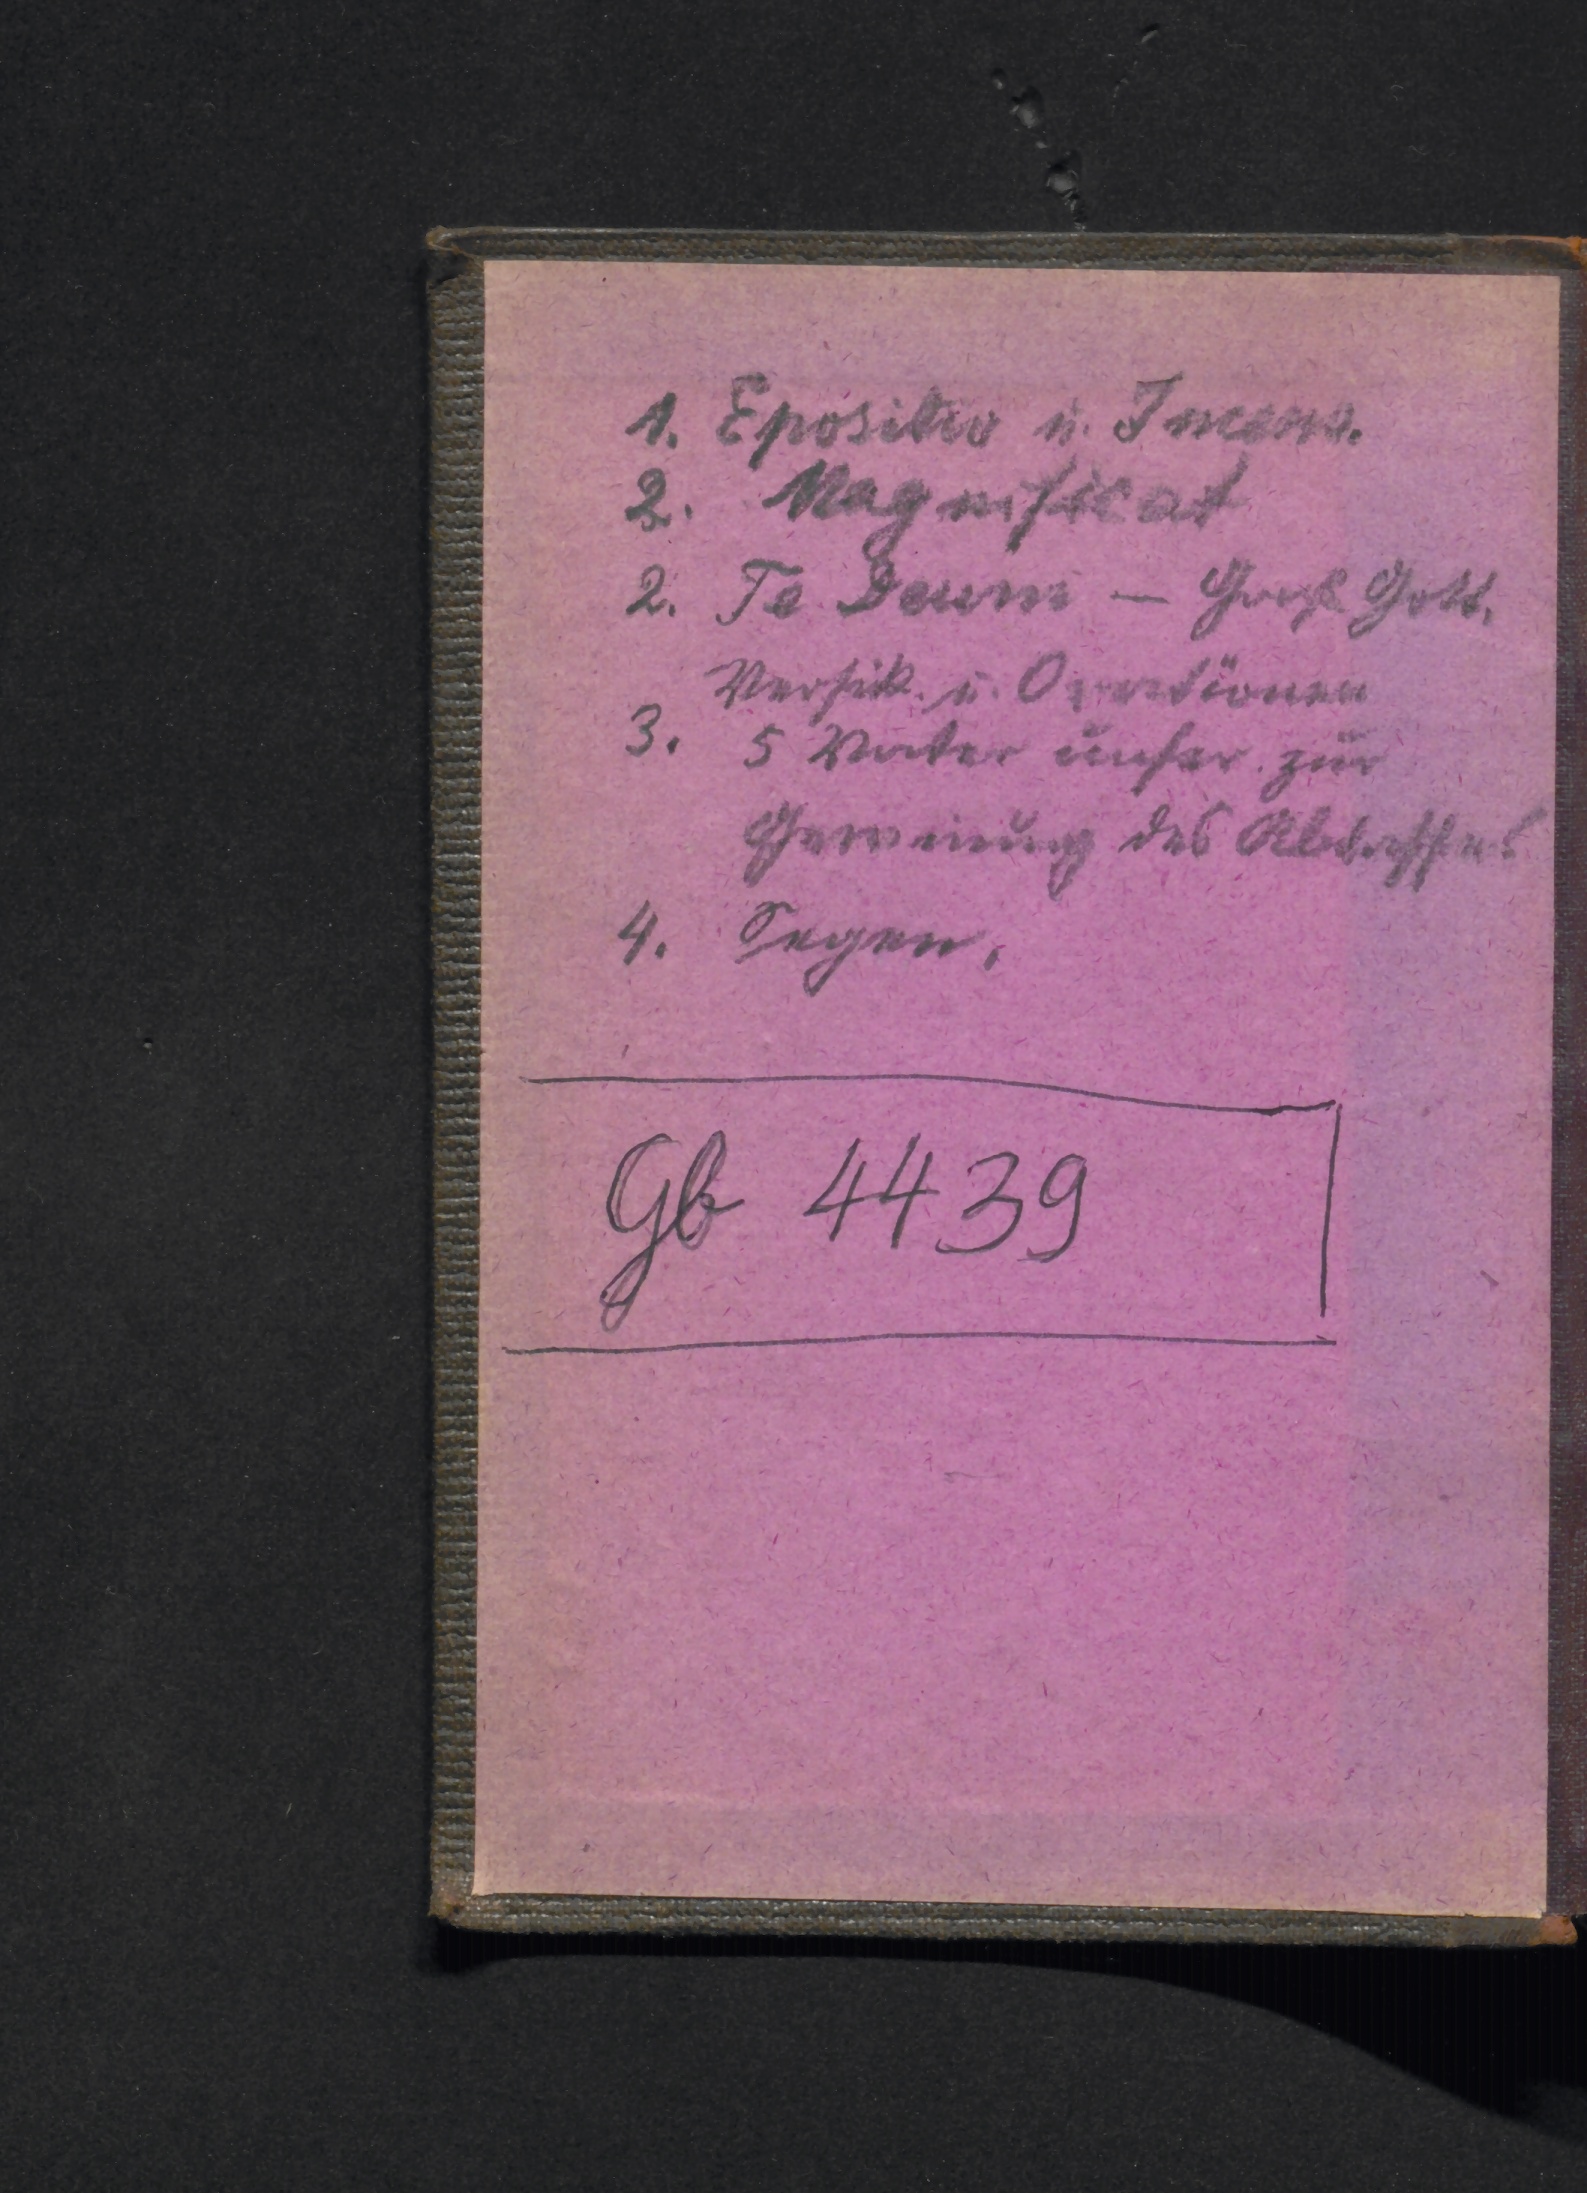 1. Epositio u. Incens.
2. Magnificat
2. Te Deum — Groß Gott.
Versik. u. Orationen
3. 5 Vater unser zur
Gewinnung des Ablasses
4. Segen.
Gb 4439